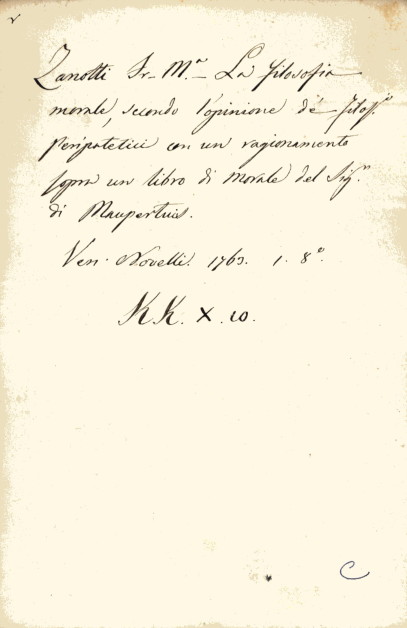 Zanotti Fr. M.ª La filosofia
morale, secondo l'opinione de' filosf.i
Peripatetici con un ragionamento
sopra un libro di morale del Sig.r
di Maupertuis.
Ven. Novelli. 1763. 1. 8º.
KK. X. 10.
C